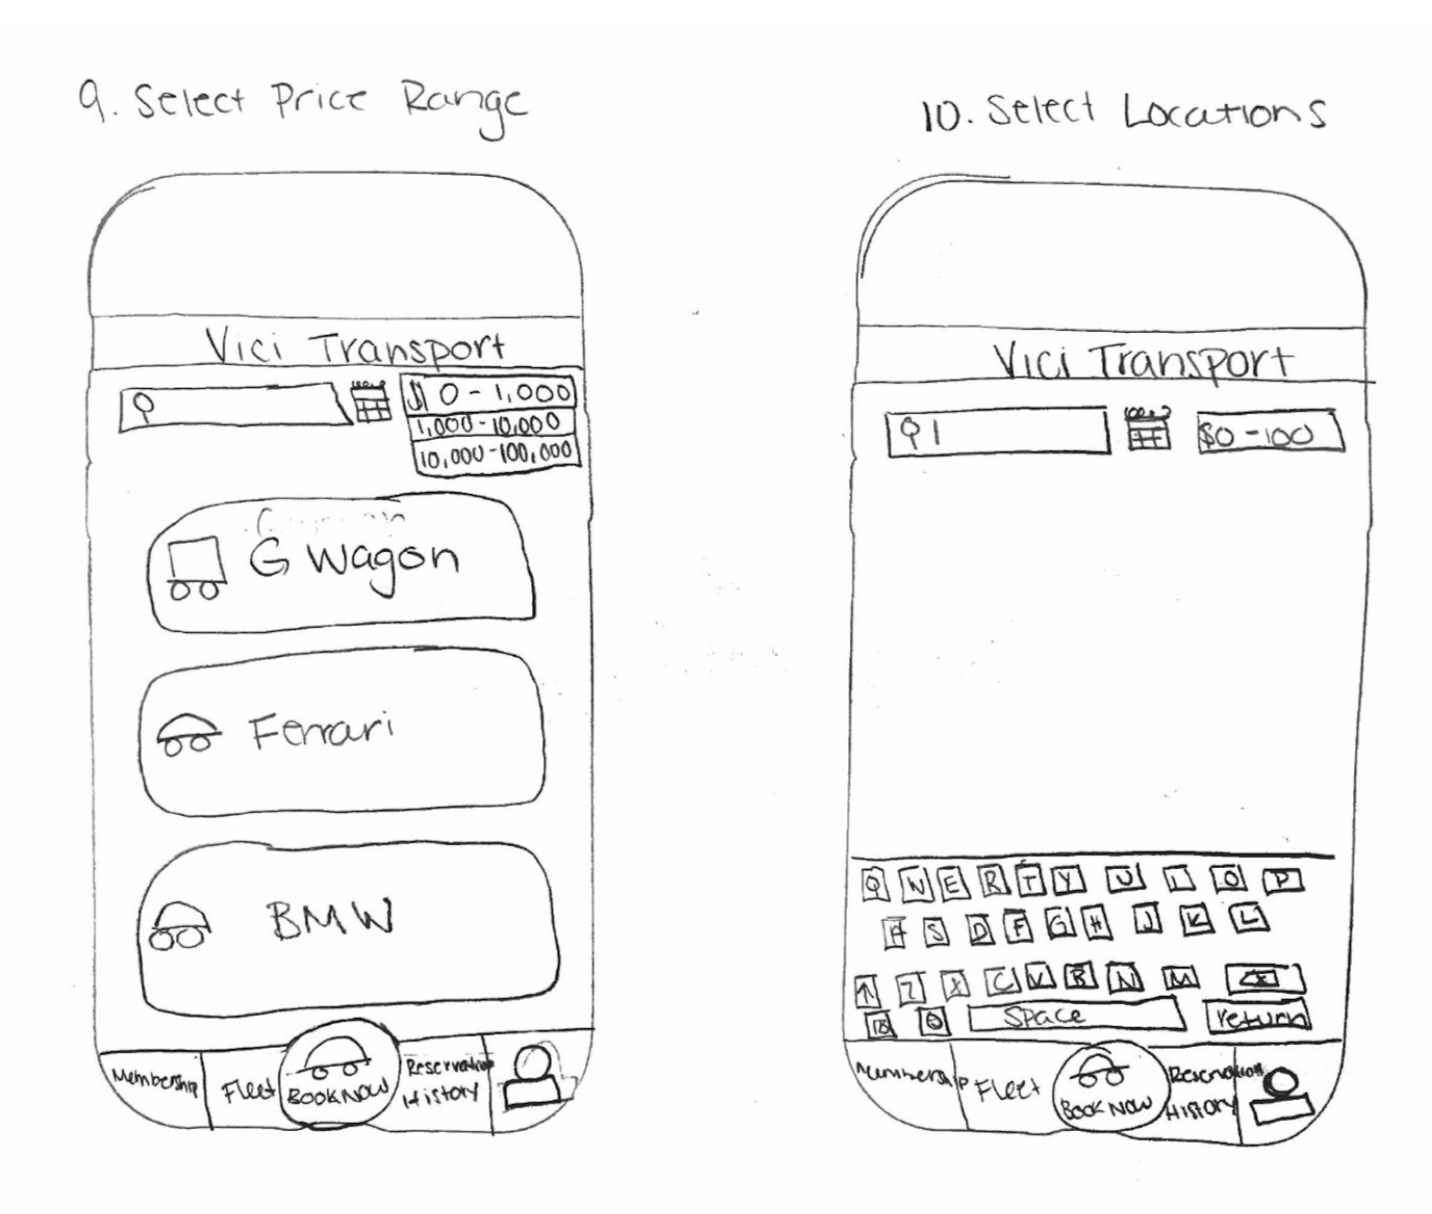 9. Select Price Range
Vici Transport
$ 0 - 1,000
1,000 - 10,000
10,000 - 100,000
G Wagon
Ferrari
BMW
Membership
Fleet
BOOK NOW
Reservation
History
10. Select Locations
Vici Transport
$0 - 100
Q W E R T Y U I O P
A S D F G H J K L
Z X C V B N M
Space
return
Membership
Fleet
Book Now
Reservation
History